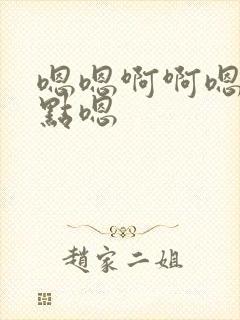 嗯嗯啊啊嗯
點嗯
趙家二姐